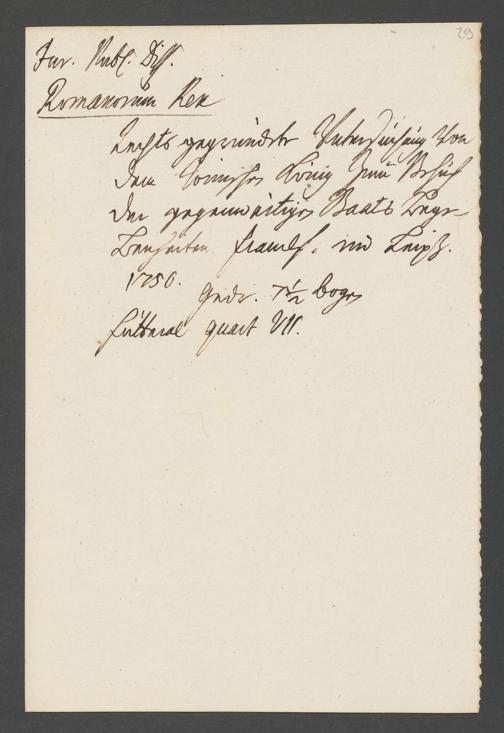 29
Jur. Publ. Diss.
Romanorum Rex
Rechts gegründete Untersuchung Von
dem Römischen König zum Behuf
der gegenwärtigen Staats Bege-
benheiten. Frankf. und Leipz.
1750.
Gedr. 7 1/2 bogen
Futteral quart VII.